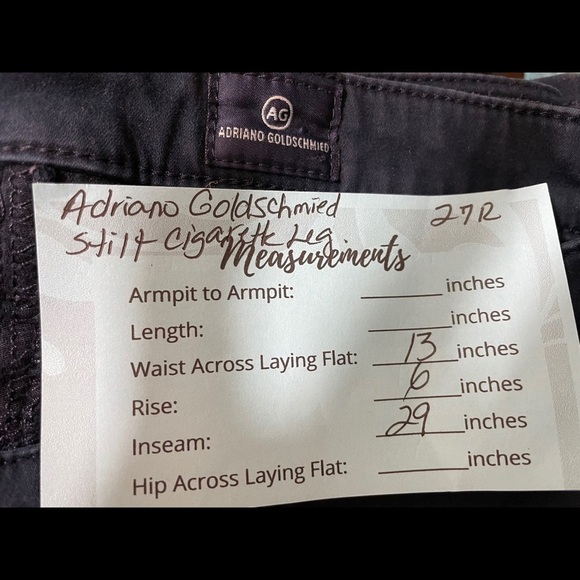 AG
ADRIANO GOLDSCHMIED
Adriano Goldschmied 27R
Stilt Cigarette Leg
Measurements
Armpit to Armpit: ______ inches
Length: ______ inches
Waist Across Laying Flat: 13 inches
Rise: 6 inches
Inseam: 29 inches
Hip Across Laying Flat: ______ inches